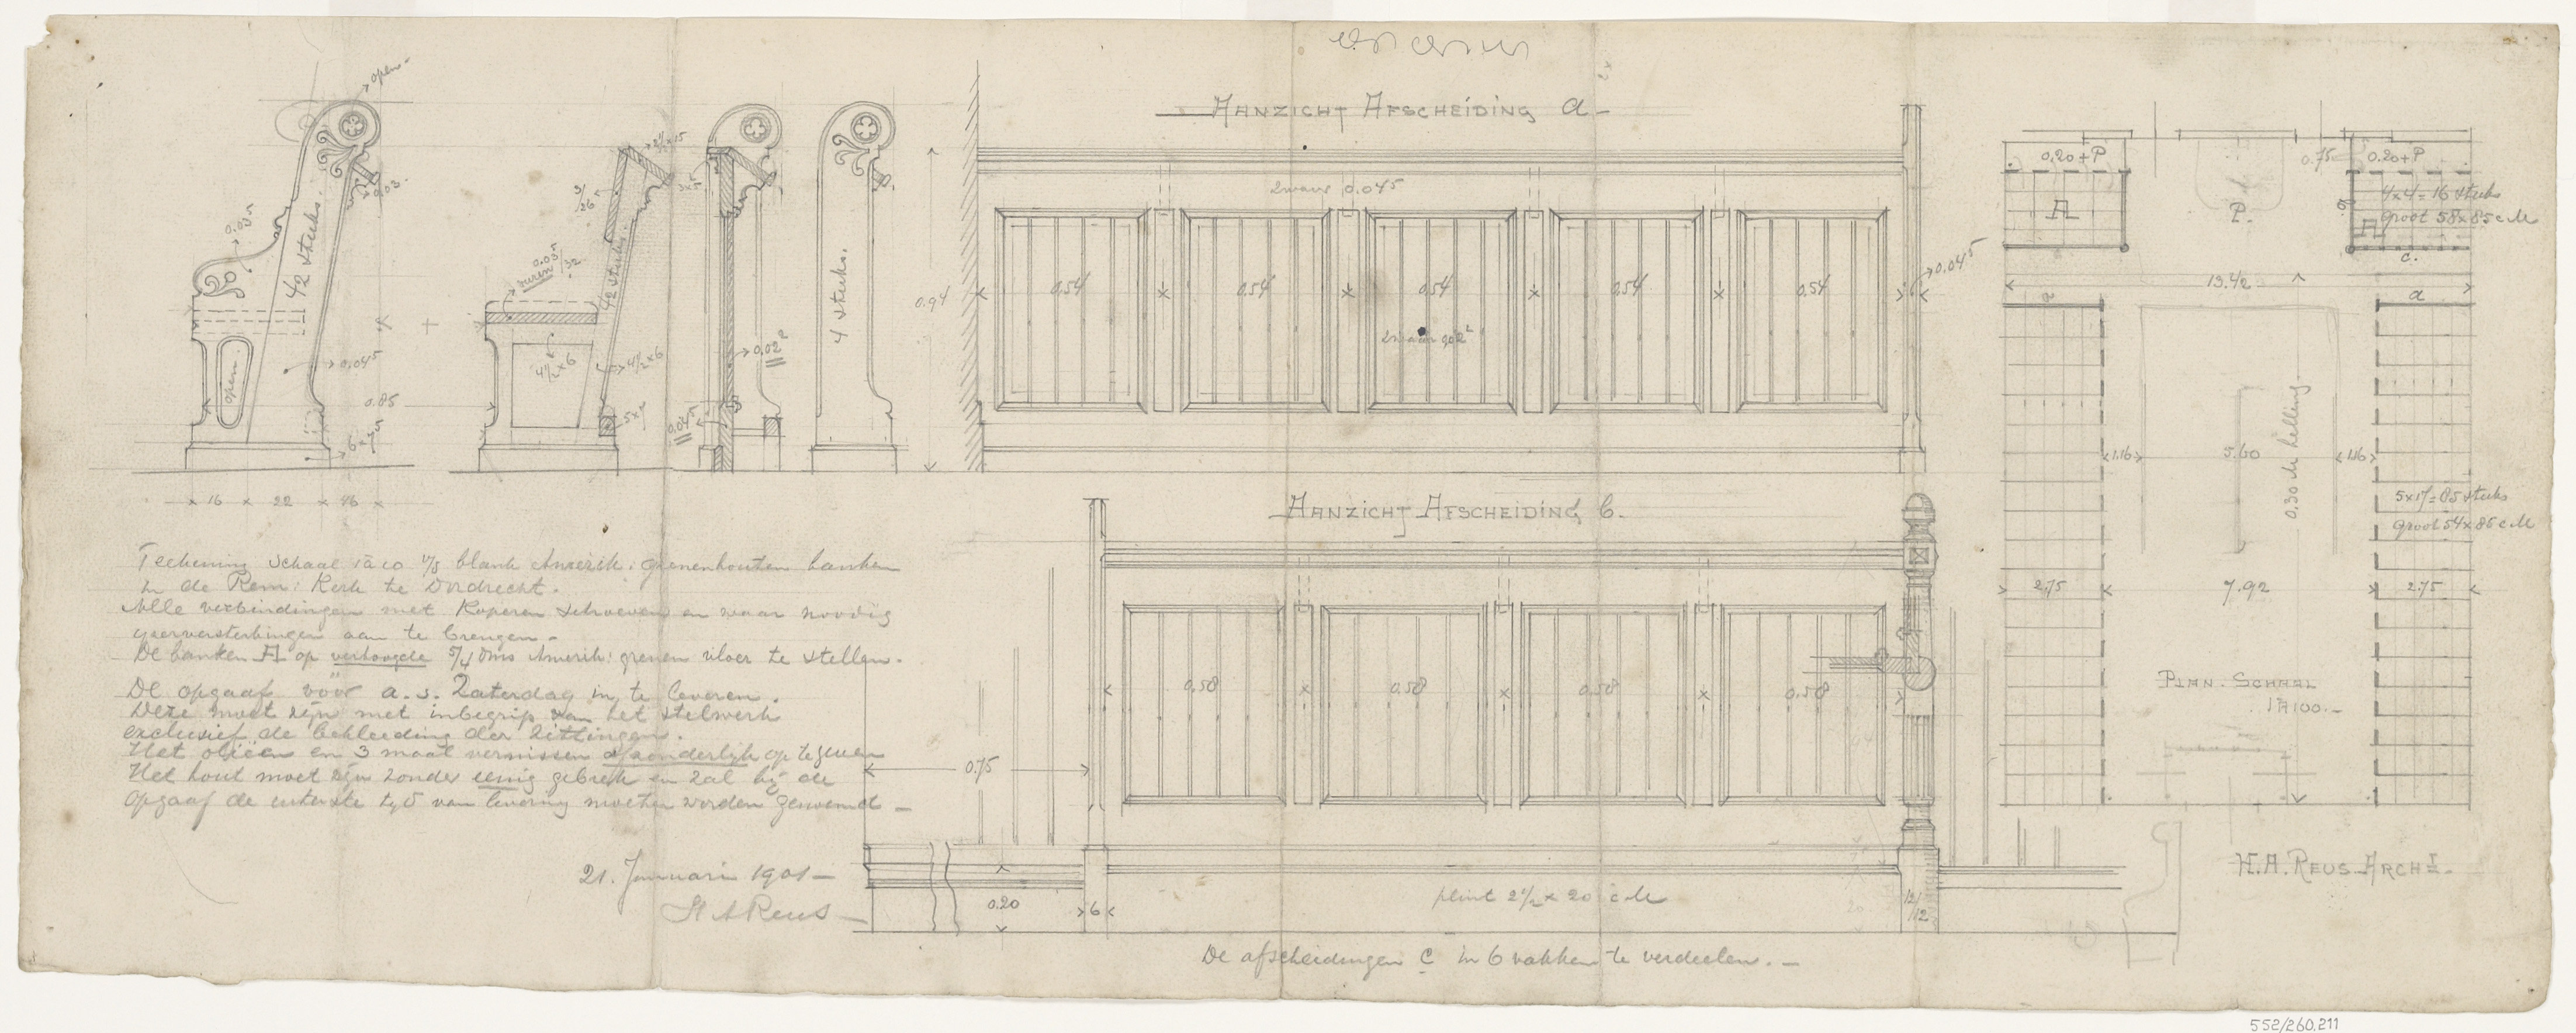 open.
0.03
42 stuks.
0.035
open.
0.045
0.85
16 × 22 × 46
2½×15
3/26
0.035/32
vuren
42 stuks.
4½×6
4½×6
5×7
3×5
0.02²
0.04⁵
4 stuks.
0.94
AANZICHT AFSCHEIDING a.
zwaar 0.04⁵
0.54
0.54
0.54
0.54
0.54
zwaar 0.02²
0.04⁵
AANZICHT AFSCHEIDING b.
0.58
0.58
0.58
0.58
0.75
0.20
6
plint 2½ × 20 cM
12/12
De afscheidingen c in 6 vakken te verdeelen.
Teekening Schaal 1 à 10 v/d blank Amerik: grenenhouten banken
in de Rem: Kerk te Dordrecht.
Alle verbindingen met Koperen schroeven en waar noodig
ijzerversterkingen aan te brengen.
De banken A op verhoogde 5/4 dms Amerik: grenen vloer te stellen.
De opgaaf vóór a.s. Zaterdag in te leveren.
Deze moet zijn met inbegrip van het stelwerk
exclusief de bekleeding der zittingen.
Het oliëen en 3 maal vernissen afzonderlijk op te geven
Het hout moet zijn zonder eenig gebrek en zal bij de
opgaaf de uiterste tijd van levering moeten worden genoemd
21. Januari 1901
H A Reus
0.20+P
A
P.
0.75
0.20+P
4×4=16 stuks
groot 58×85 cM
b
A
c.
13.42
a
a
1.16
5.60
0.30 M helling.
1.16
5×17=85 stuks
groot 54×85 cM
2.75
7.92
2.75
PLAN. SCHAAL
1 À 100.
H.A. REUS ARCHT.
552/260.211